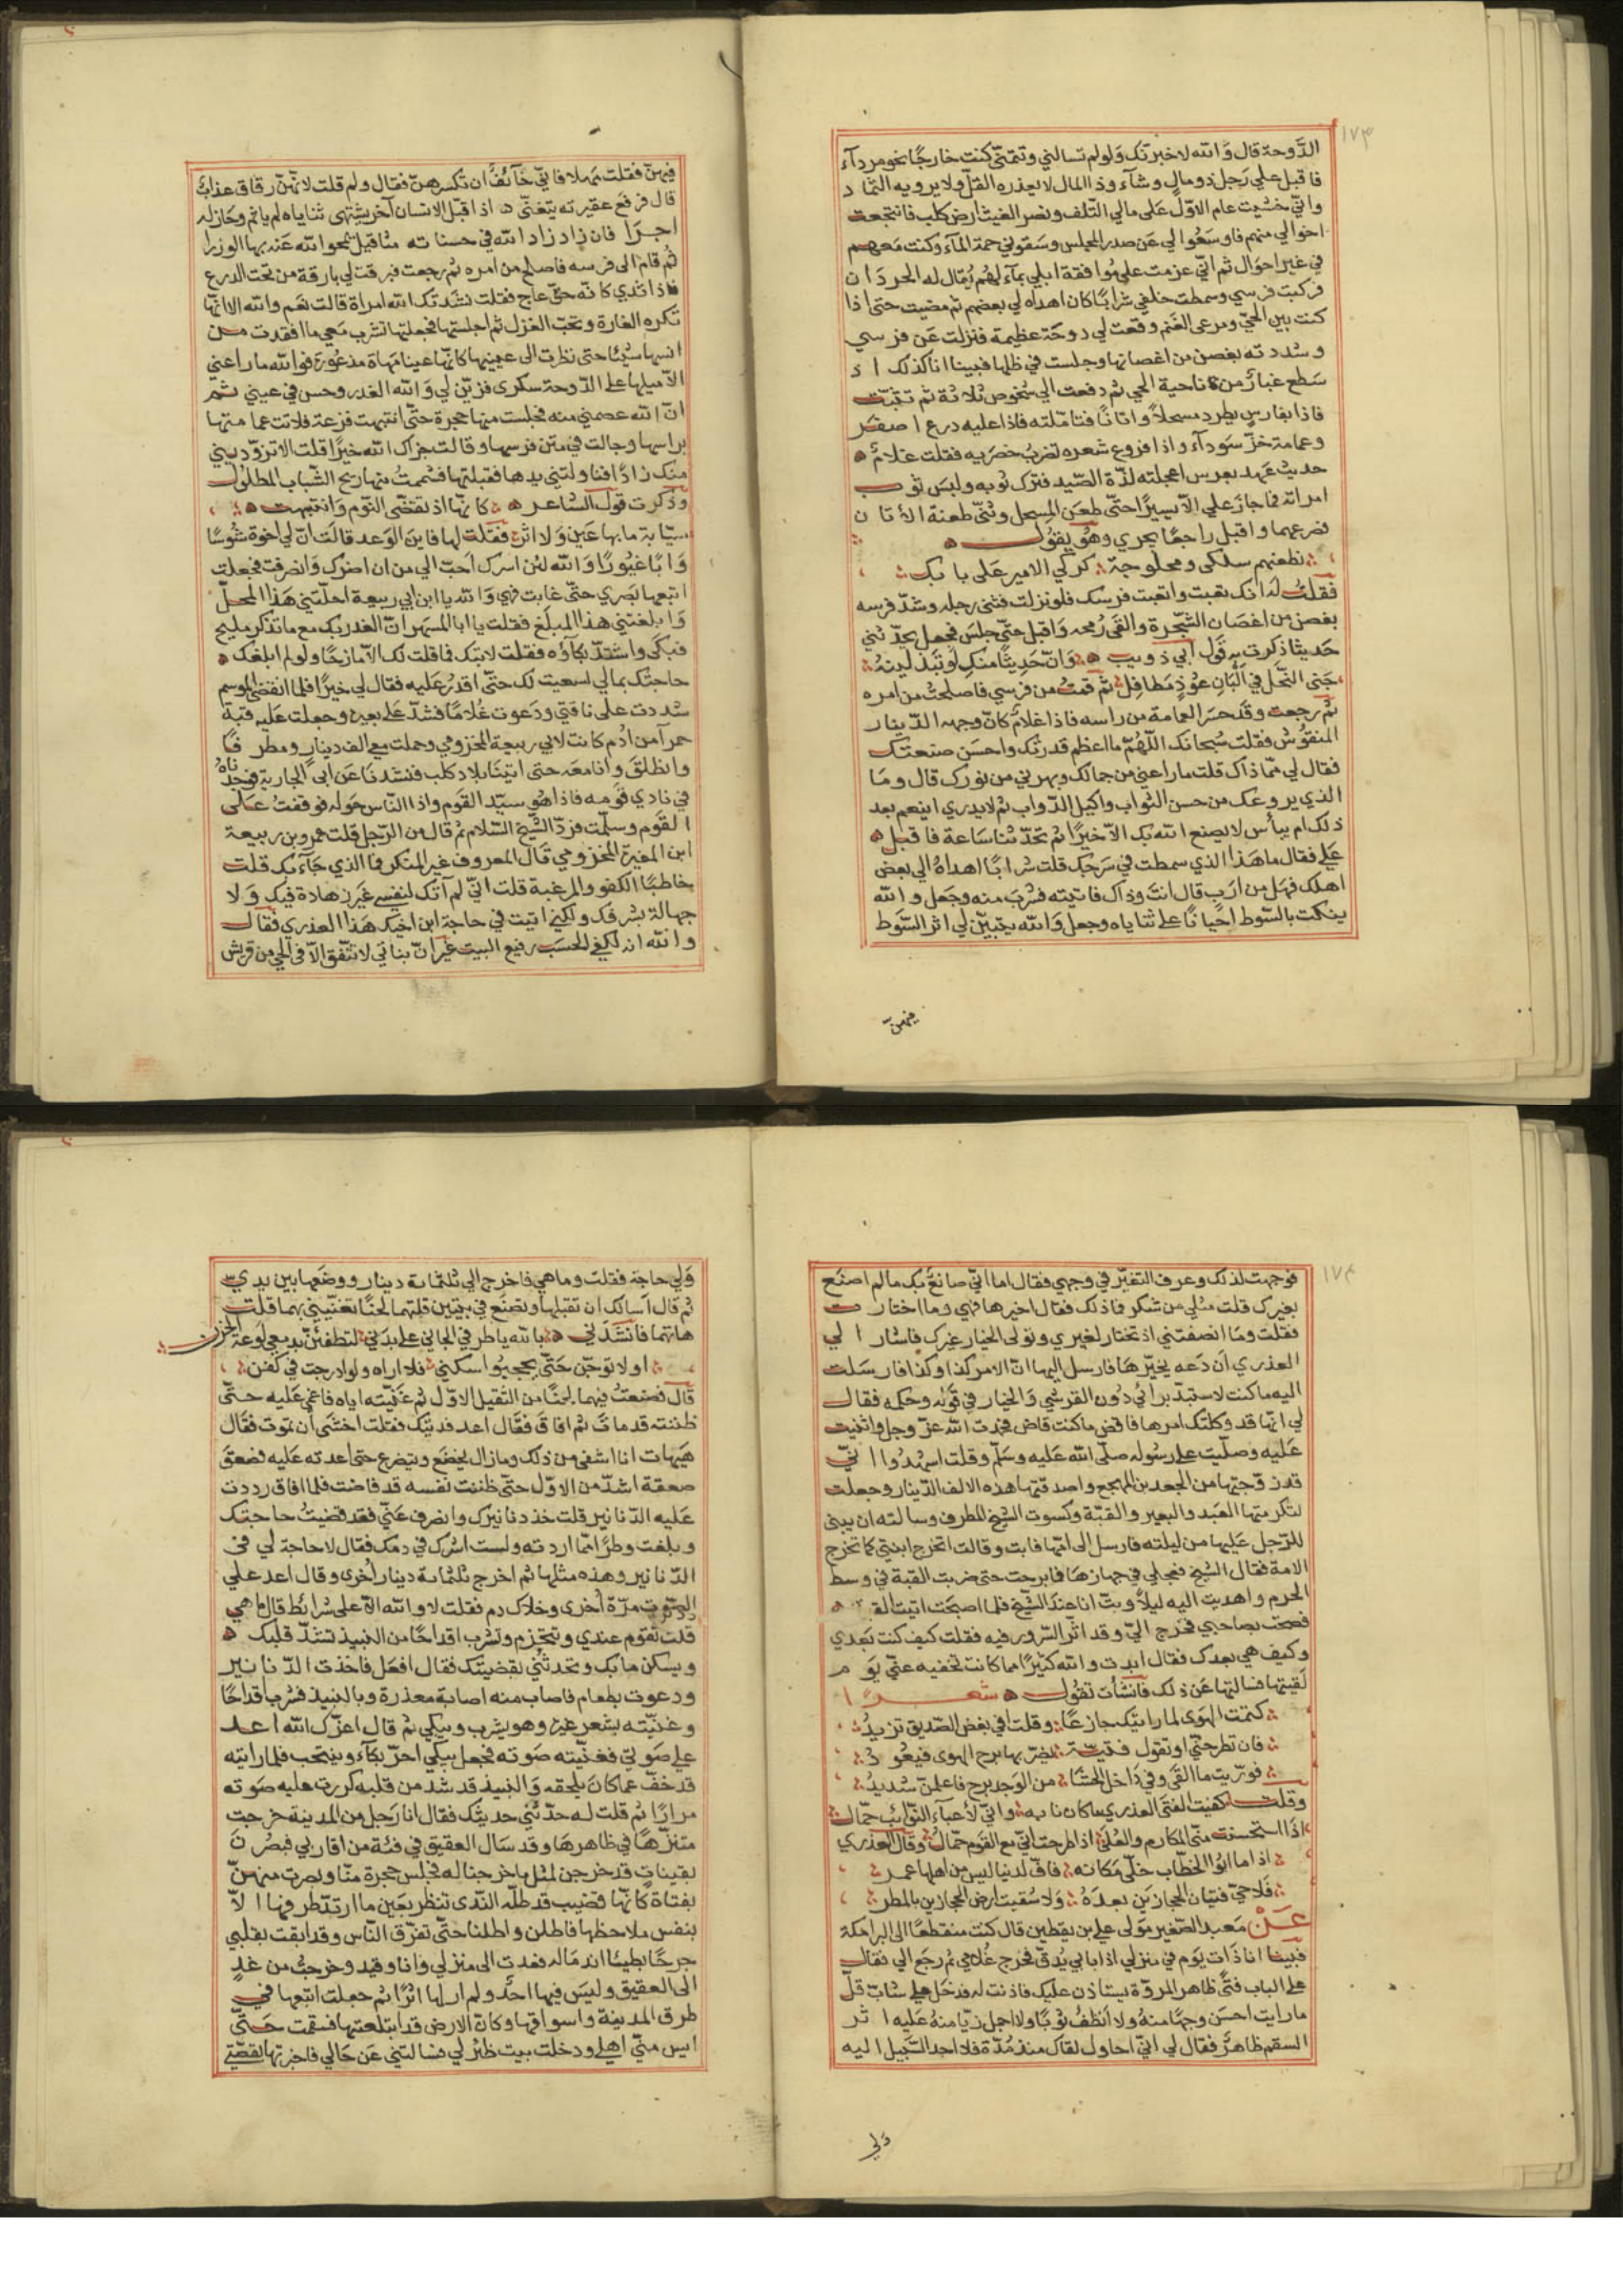 ١٧٣
الدَّوحة قال وَالله لاخبرتك وَلولم تسالني وتمنّي كنت خارجًا نحو مردآء
فاقبل علي رَجل ذو مالٍ وشآء وذا المال لا يعذره القلّ ولا يرويه الثماد
وانّي خشيت عام الاوّل عَلى مالي التّلف ونصر الغيث ارض كلب فانتجعت
اخوالي منهم فاوسَعُوا لي عَن صدر المجلس وسَقوني حمة المآء وكنت مَعهم
في غير احوَال ثم انّي عزمت علي مُوافقة ابلي بمآء لهُم يُقال له الحردَان
فركبت فرسي وسمطت خلفي شرابًا كان اهداه لي بعضهم ثم مضيت حتى اذا
كنت بين الحيّ ومرعى الغنم وقعت لي دوحَة عظيمة فنزلت عَن فرسي
وشددته بغصن من اغصانها وجلست في ظلها فبينا انا كذلك اذ
سَطع غبارٌ من ناحية الحي ثم دفعت الي شخوص ثلاثة ثم تقبّت
فاذا بفارس يطرد مسحلاً واتانًا فتامّلته فاذا عليه درع اصفَر
وعمامة خزّ سَودآء واذا فروع شعره تضربُ خضرَيه فقلت غلامٌ
حديث عَهد بعرس اعجلته لذّة الصّيد فترك ثوبه ولبسَ ثوب
امراته فما جازَ علي الّا يسيرًا حتّى طعَن المِسحل وثنّى طعنة الأتان
فصرعهما واقبل راجعًا يجري وهُو يقوُل
نطعنهم سلكى ومخلوجة كركي الامير عَلى بابك
فقلتُ لهَ انك تعبت واتعبت فرسك فلو نزلت فثنى رجله وشدّ فرسه
بغصن من اغصان الشّجرة والقى رُمحه وَاقبل حتّى جلسَ فجعل يحدّثني
حَديثا ذكرت به قول ابي ذويب وَانّ حَدِيثًا منكِ لو تَبذلينهُ
جَنى النّحل في اَلْبَانِ عُوْذٍ مَطَافِل ثم قمتُ من فرسي فاصلحتُ من امره
ثم رجعت وقد حسَر العمامة من راسه فاذا غلامٌ كانّ وجهه الدّينار
المنقوُش فقلت سُبحانك اللّهُمّ ما اعظم قدرتك واحسَن صنعتك
فقال لي مّما ذاك قلت ما راعني من جمالك وبهرني من نورك قال ومَا
الذي يروعك من حسن التواب واكيل الدّواب ثم لا يدري اينعم بعد
ذلك ام يبأس لا يصنع الله بك الاّ خيرًا ثم تحدّثنا سَاعة فاقبل
عَلي فقال ما هَذا الذي سمطت في سَرجك قلت شرابًا اهداهُ الي بعض
اهلك فهَل من ارَبٍ قال انتَ وذاك فاتيته فشربَ منه وجَعل والله
ينكت بالسّوط احيانًا على ثناياه وجعل وَالله يتبيّن لي اثر السَّوط
فيهنّ
فيهنّ فقلت مَهلا فانّي خَآئفٌ ان تكسرهنّ فقال ولم قلت لانّهنّ رقاق عذابٌ
قال فرفع عقيرته يتغنّى اذا قبّل الانسان آخر يشتهى ثناياه لم ياثم وحَاز له
اجرَا فان زاد زاد الله في حسناته مثاقيل يمحو الله عَنه بها الوزرا
ثم قامَ الى فرسه فاصلح من امره ثم رجعت فبرقت لي بارقة من تحت الدرع
فاذا ثدي كانّه حقّ عاج فقلت نشَدتك الله امراة قالت نعَم والله الا انّها
تكره الغارة وتحبّ الغزل ثم اجلستها فجعلتها تشرب مَعي ما افقدت من
انسها شيئا حتى نظرت الى عينيها كانّها عينا مَهاة مذعورَة فوالله ما راعني
الاّ ميلها على الدّوحة سكرى فزيّن لي وَالله الغدر وحسن في عيني ثم
انّ الله عصمني منه فجلست منها حجرة حتّى انتبهت فزعة فلاثت عمامتها
براسها وجالت في متن فرسها وقالت جزاك الله خيرًا قلت الا تزوّديني
منك زادًا فناولتني يدها فقبلتها فشممتُ منها ريح الشّباب المطلُول
وذكرت قول الشاعر كانّها اذ تقضّى النّوم وَانتبهت
سيّابة ما بها عَين وَلا اثر فقلت لها فاين الوَعد قالَت انّ لي اخوة شُوسًا
وَابًا غَيُورًا وَالله لئن اسرك اَحبّ الي من ان اضرّك وَانصَرفت فجعلت
اتبعها بَصَري حتّى غابت فهي وَالله يا ابن ابي ربيعة احلّتني هَذا المحلّ
وَابلغتني هذا المبلَغ فقلت يا ابا المسهر انّ الغدر بك مع ما تذكر مليح
فبكى واشتدّ بكآؤه فقلت لا تبك فما قلت لك الاّ مازحًا ولو لم ابلغك
حاجتك بمالي لسعيت لك حتّى اقدرُ عليه فقال لي خيرًا فلما انقضى الموسم
شددت على ناقتي ودَعوت غُلامًا فشدّ على بعيره وجعلت عَليه قبة
حمرآ من اَدُم كانت لابي ربيعة المخزومي وحملت معي الف دينار ومطرفًا
وانطلقَ وانا معَه حتى اتينَا بلاد كلب فنشدنَا عَن ابى الجارية فوجدناهُ
في نادي قومه فاذا هُو سيّد القَوم واذا النّاس حَوله فوقفتُ عَلى
القَوم وسلمت فردّ الشّيخ السّلام ثم قال من الرّجل قلت عمرو بن ربيعة
ابن المغيرة المخزومي قال المعروف غير المنكر فما الذي جَآءَ بك قلت
خاطبًا الكفو والمرغبة قلت انّي لم آتك لنفسي غَير زهادة فيك وَلا
جهالة بشرفك ولكنّي اتيت في حاجة ابن اخيك هَذا العذري فقال
والله انه لكفي الحسَب رفيع البيت غَير انّ بناتي لا تتّفق الاّ في الحي من قريش
١٧٤
فوجهت لذلك وعرف التغيّر في وجهي فقال اما انّي صانعٌ بك ما لم اصنَع
بغيرك قلت مثلي من شكر فاذ لك فقال اخيرها فهي وما اختارت
فقلت ومَا انصفتني اذ تختار لغيري وتولى الخيار غيرك فاشار الي
العذري اَن دَعه يخيّرهَا فارسل اليها انّ الامر كذا وكذا فارسَلت
اليه ما كنت لاستبدّ براي دُون القرشي وَالخيار في قوله وحكمه فقال
لي انّها قد وكلتك امرها فاقض ما كنت قاض فحمدت الله عزّ وجل واثنيت
عَليه وصلّيت على رسُوله صلّى الله عَليه وسَلم وقلت اشهدُوا انّي
قد زوّجتها من الجعد بن المهجع واصدقتها هذه الالف الدّينار وجعلت
تكرمتها العَبد والبعير والقبّة وكسوت الشيخ المطرف وسالته ان يبنى
للرّجل عَليها من ليلته فارسل الى امّها فابت وقالت اتخرج ابنتي كما تخرج
الامة فقال الشيخ فعجلي في جهازهَا فما برحت حتى ضربت القبة في وسط
الحرم واهديت اليه ليلاً وبتّ انا عندَ الشيخ فلما اصبحَت اتيت القبة
فصحت بصاحبي فخرج اليّ وقد اثّر السّرور فيه فقلت كيف كنت بَعدي
وكيف هي بعدك فقال ابدت والله كثيرًا مما كانت تخفيه عنّي يَوم
لَقيتها فسَالتها عَن ذلك فانشأت تقُول شعرًا
كتمت الهَوى لما رايتك جازعًا وقلت فتى بعض الصّديق تزيدُ
فان تطرحنّي او تقول فتيّة يُضرّ بها برح الهوى فيعُودُ
فورّيت ما القَى وفي دَاخل الحَشَا من الوَجد برح فاعلمنّ شديدُ
وقلت كفيت الفتى العذري ما كان نابه وانّي لأعبآء النّوائب حمّال
اذا استحسنت منّي المكارم والعُلَى اذا طرحت انّي مع القوم حمّالُ وقال العذري
اذا ما ابوُ الخطّاب خلّى مَكانه فافّ لدنيا ليس من اهلها عمر
فَلا حيّ فتيان الحجازين بعدهُ وَلا سُقيت ارض الحجازين بالمطر
عَنْ مَعبد الصّغير مَولى علي بن يقطين قال كنت منقطعًا الى البرامكة
فبينا انا ذَات يَوم في منزلي اذا بابي يُدقّ فخرج غُلامي ثم رجَع الي فقال
على الباب فتًى ظاهر المروّة يستاذن عليك فاذنت له فدخَل علي شابٌ قلّ
ما رايت احسَن وجهًا منهُ ولا انظفُ ثوبًا ولا اجمل زيًا منهُ عَليه اثر
السقم ظاهرٌ فقال لي انّي احاول لقاك منذ مُدّة فلا اجد السَّبيل اليه
وَلي
وَلي حاجة فقلت وما هي فاخرج الي ثلثماية دينار ووضعَها بين يدي
ثم قال اَسالك ان تقبلها وتصنَع في بيتين قلتهما لحنًا تغنّيني بهما قلت
هاتهما فانشَدَني بالله يا طرفي الجاني على بدَني لتطفئن بدمعي لوعة الحزن
او لا بوحنّ حَتّى يحجبُوا سكني فلا اراه ولو ادرجت في كفن
قال فصنعتُ فيهما لحنًا من الثقيل الاوّل ثم غنّيته اياه فاغمي عَليه حتّى
ظننته قد ماتَ ثم افاقَ فقَال اعد فديتك فقلت اخشَى أن تموت فقال
هَيهات انا اشقى من ذلك وما زال يخضَع ويتضرع حتى اعدته عَليه فصعقَ
صعقة اشدّ من الاوّل حتّى ظننت نفسه قد فاضت فلما افاق رددت
عَليه الدّنانير قلت خذ دنانيرك وانصرف عَنّي فقد قضيتُ حاجتك
وبلغت وطرًا ممّا اردته ولست اشرك في دمك فقال لا حاجة لي فى
الدّنانير وهذه مثلها ثم اخرج ثلثماية دينار اُخرى وقال اعد علي
الصّوت مرّة أخرى وخلاك دم فقلت لا والله الاّ على شرائط قال ما هي
قلت تقوم عندي وتتحزم وتشرب اقداحًا من النبيذ تشدّ قلبك
ويسكن ما بك وتحدثني بقصّتك فقال افعَل فاخذت الدّنانير
ودعوت بطعام فاصاب منه اصابة معذرة وبالنبيذ فشرب اقداحًا
وغنّيته بشعر غيره وهو يشرب ويبكي ثم قال اعزّك الله اعد
علي صَوتي فغنّيته صَوته فجعل يبكي احرّ بكآء وينتحب فلما رايته
قد خفّ عما كانَ يلحقه وَالنبيذ قد شد من قلبه كررت عليه صَوته
مرارًا ثم قلت له حدّثني حديثك فقال انا رجل من المدينة خرجت
متنزّهًا في ظاهرهَا وقد سَال العقيق في فئة من اقاربي فبصُرنَ
بقيناتٍ قد خرجن لمثل ما خرجنا له فجلس حجرة منّا وبصرت منهنّ
بفتاة كانّها قضيب قد طلّه النّدى تنظر بعَين ما ارتدّ طرفها الاّ
بنفس ملاحظها فاطلن واطلنا حتّى تفرّق النّاس وقد ابقت بقلبي
جرحًا بطيئا اندماله فعدت الى منزلي وانا وقيد وخرجتُ من غدٍ
الى العقيق وليسَ فيها احدٌ ولم ار لها اثرًا ثم جعلت اتبعها في
طرق المدينة واسواقها وكانّ الارض قد ابتلعتها فسقمت حَتّى
ايس منّي اهلي ودخلت بيت ظئر لي فسالتني عَن حَالي فاخبرتها بقصّتي